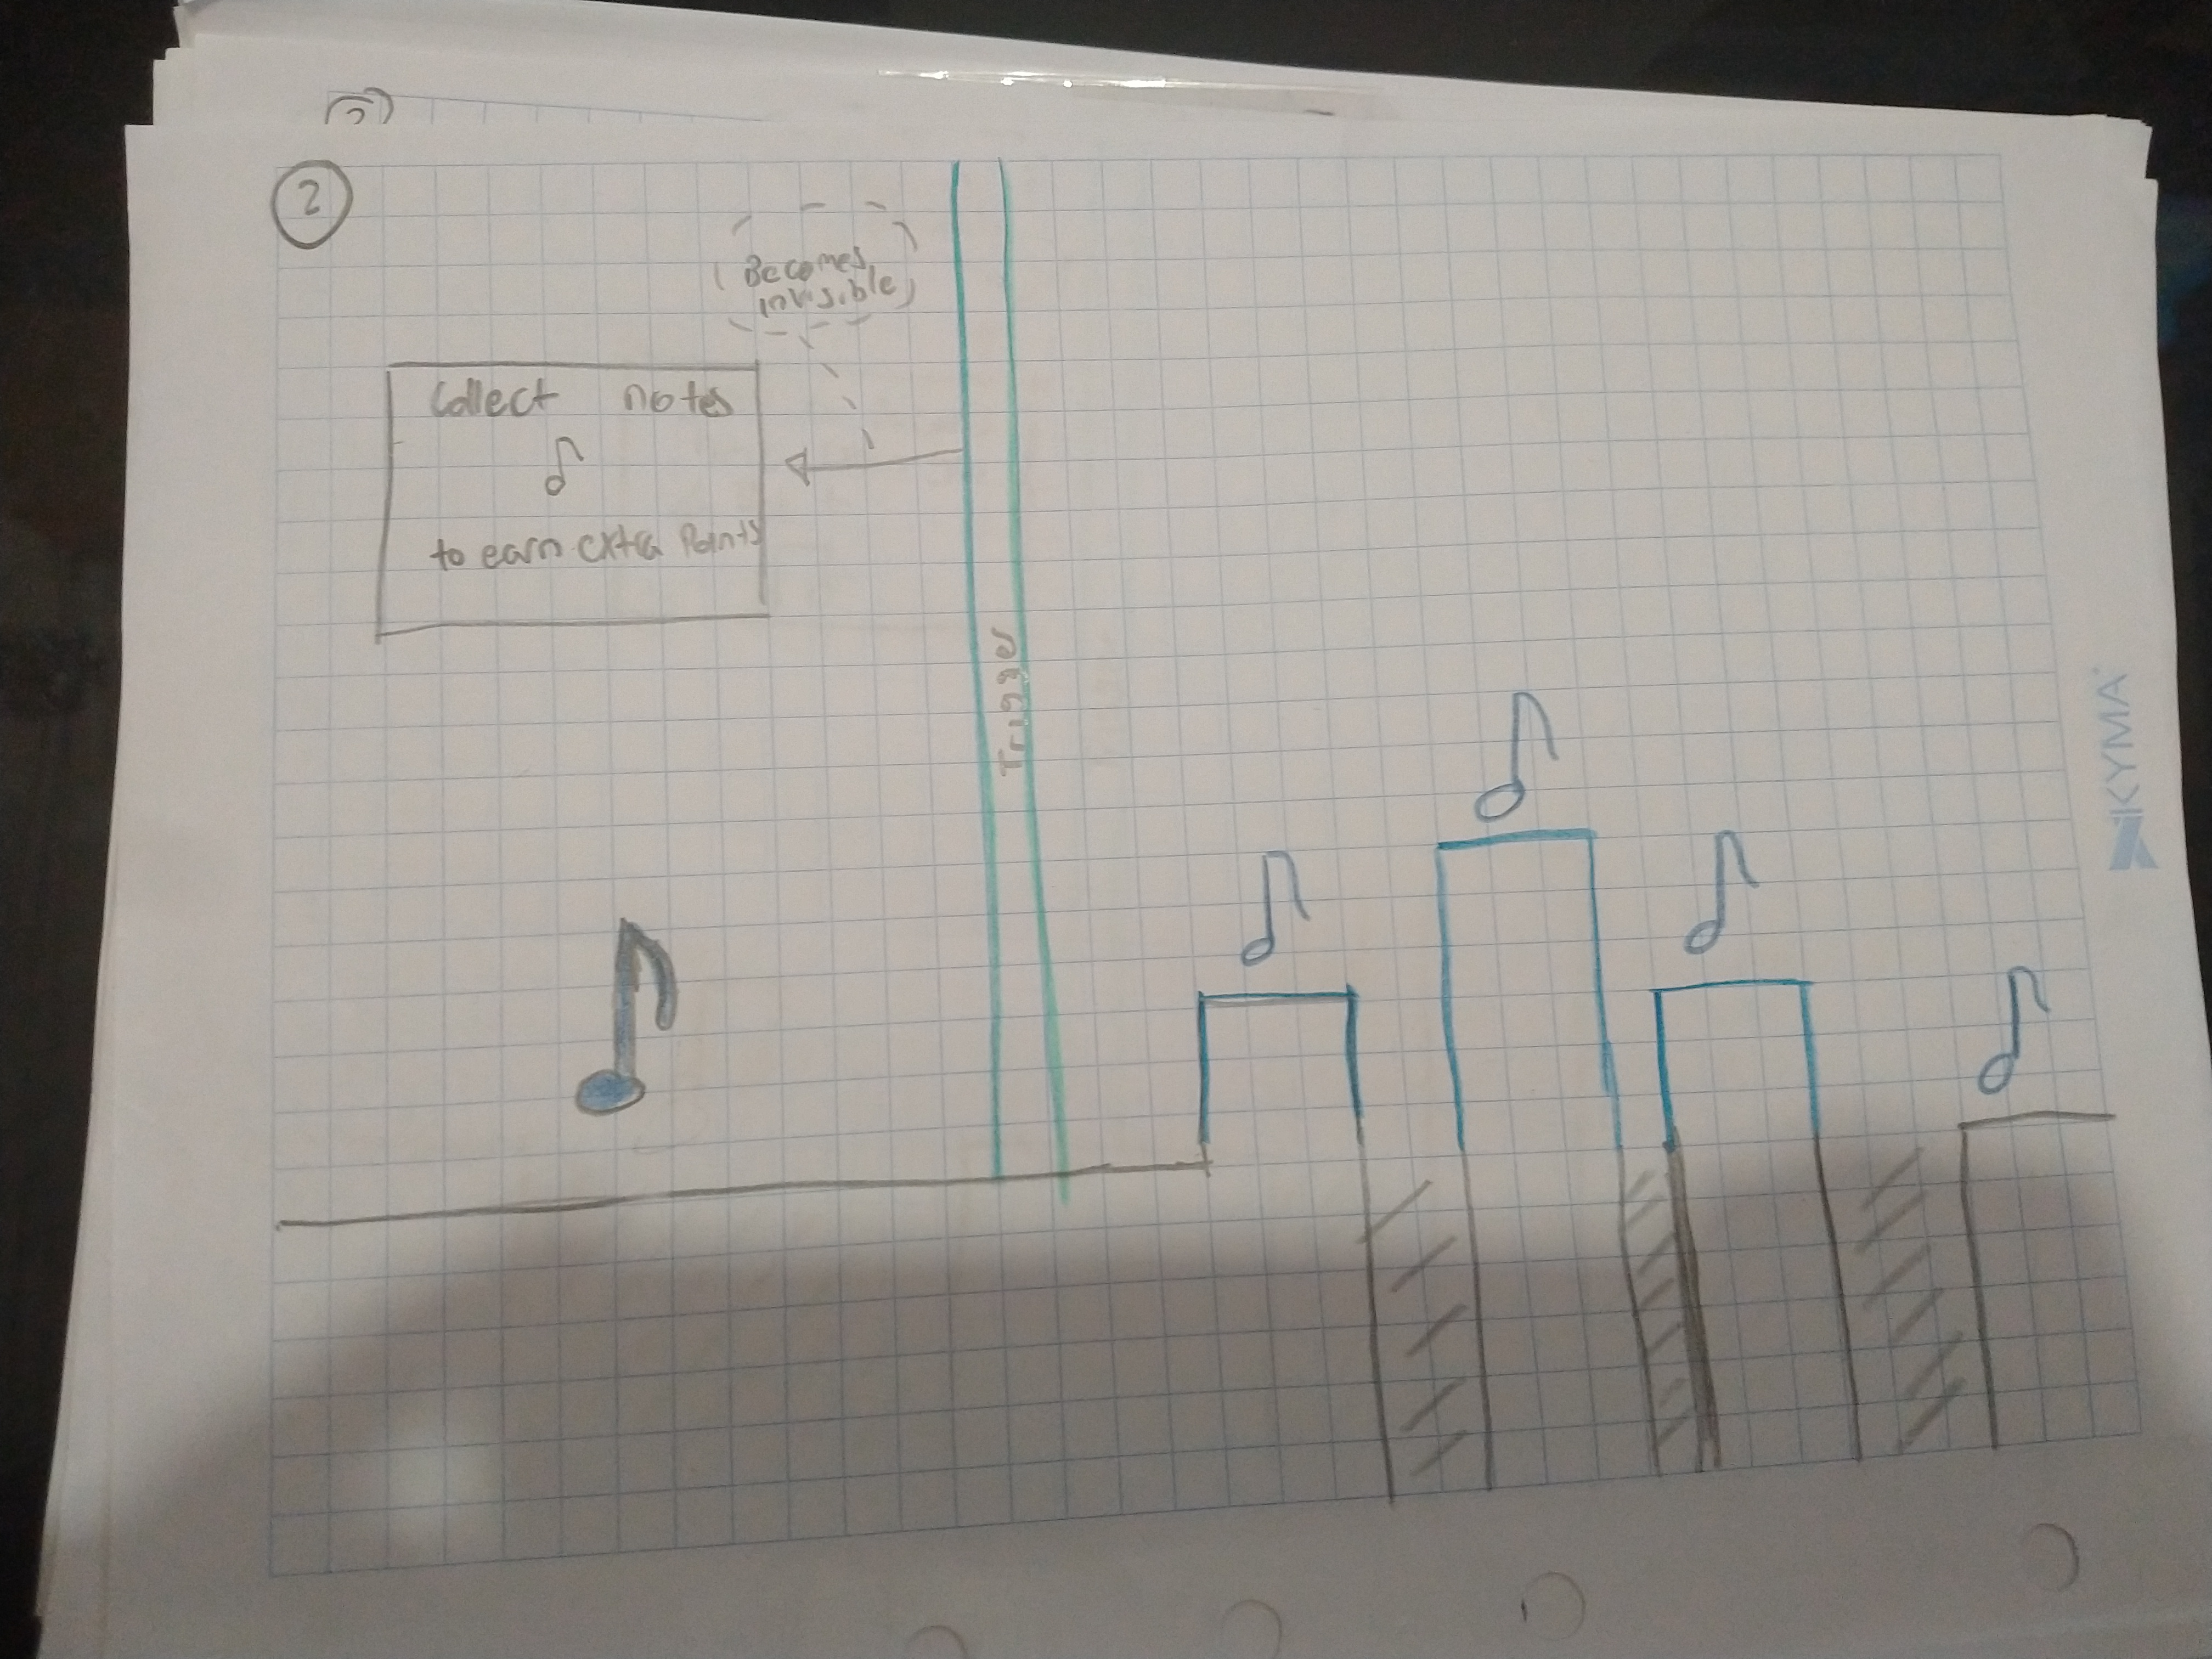 2
Becomes
invisible
Collect notes
to earn extra Points
Trigger
KYMA